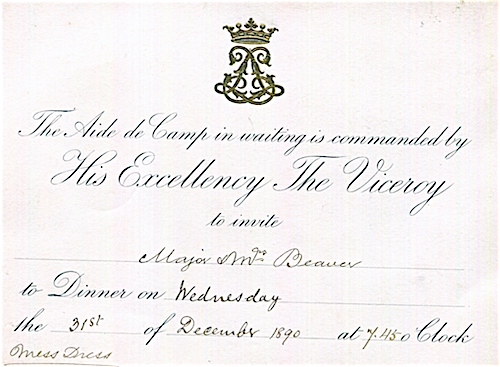 The Aide de Camp in waiting is commanded by
His Excellency The Viceroy
to invite
Major & Mrs Beaver
to Dinner on Wednesday
the 31st of December 1890 at 7.45 o'Clock
Mess Dress